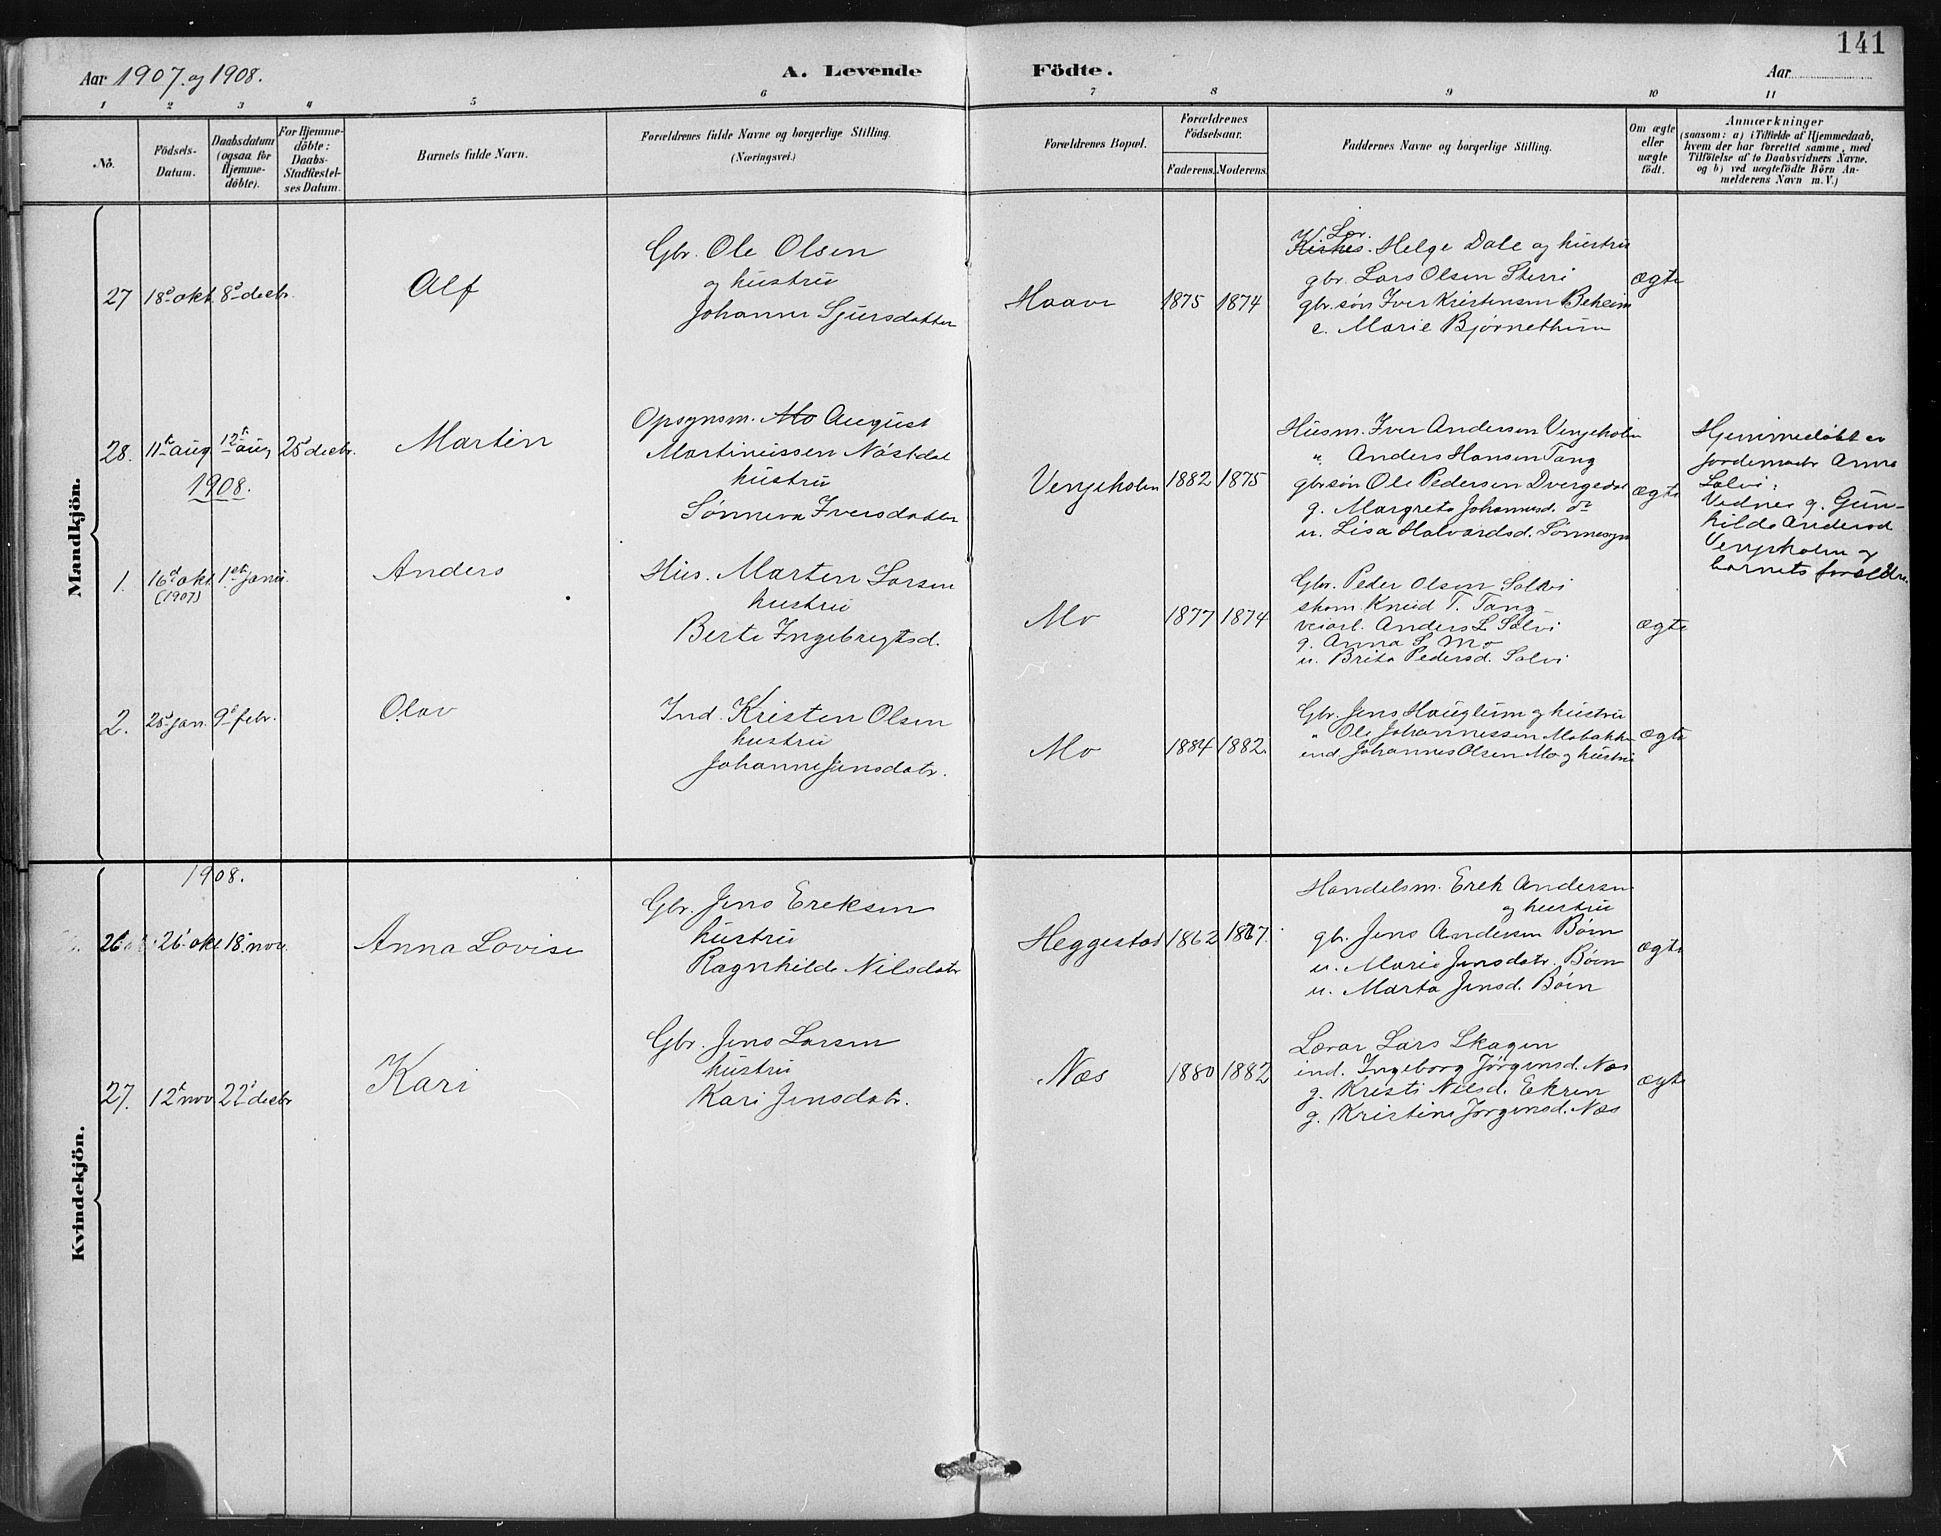 141
Aar 1907. og 1908.
A. Levende Födte.
Aar
1 2 3 4 5 6 7 8 9 10 11
No.
Födsels-Datum.
Daabsdatum (ogsaa for Hjemme-döbte).
For Hjemme-döbte: Daabs-Stadfæstel-ses Datum.
Barnets fulde Navn.
Forældrenes fulde Navne og borgerlige Stilling.
(Næringsvei.)
Forældrenes Bopæl.
Forældrenes Födselsaar.
Faderens. Moderens.
Faddernes Navne og borgerlige Stilling.
Om ægte eller uægte födt.
Anmærkninger
(saasom: a) i Tilfælde af Hjemmedaab,
hvem der har forrettet samme, med
Tilföielse af to Daabsvidners Navne.
og b) ved uægtefödte Börn An-
melderens Navn m. V.)
Mandkjön.
27 18d okt. 8d decbr.
Alf
Gbr. Ole Olsen
og hustru
Johanne Sjursdatter
Haave
1875 1874
Lær.
Kirkes. Helge Dale og hustru
gbr. Lars Olsen Sterri
gbr.søn Iver Kristensen Beheim
e. Marie Bjørnethun
ægte
28. 11te aug 12te aug 25d decbr.
Martin
Opsynsm. Mo August
Martinussen Nøstdal
hustru
Sønneva Iversdatter
Venjeholm
1882 1875
Husm. Iver Andersen Venjeholm
" Anders Hansen Tang
gbrsøn Ole Pedersen Dvergedal
g. Margreta Johannesd. do
u. Lisa Halvardsd. Sønnesyn
ægte
Hjemmedøbt av
jordemodr Anna
Salvi:
Vidner g. Gun-
hilda Andersd
Venjeholm og
barnets forældre.
1908.
1. 16d okt (1907) 1ste janu.
Anders
Hus. Marten Larsen
hustru
Berte Ingebregtsd.
Mo
1877 1874
Gbr. Peder Olsen Salvi
skom. Knud T. Tang
veiarb. Anders L Salvi
g. Anna S. Mo
u. Brita Pedersd. Salvi
ægte
2. 25d jan. 9d febr.
Olav
Ind. Kristen Olsen
hustru
Johanne Jensdatr.
Mo
1884 1882
Gbr. Jens Hauglum og hustru
" Ole Johannessen Mobakken
ind. Johannes Olsen Mo og hustru
ægte
Kvindekjön.
1908.
26 26. okt 18. nov.
Anna Lovise
Gbr. Jens Ereksen
hustru
Ragnhilde Nilsdatr
Heggestad
1862 1867.
Handelsm. Erek Andersen
og hustru
gbr. Jens Andersen Bøen
u. Marie Jensdatr. Bøen
u. Marta Jensd. Bøen
ægte
27. 12te nov 22d decbr
Kari
Gbr. Jens Larsen
hustru
Kari Jensdatr.
Næs
1880 1882
Lærar Lars Skagen
ind. Ingeborg Jørgensd. Næs
g. Kristi Nilsd. Ekren
g. Kristine Jørgensd. Næs
ægte